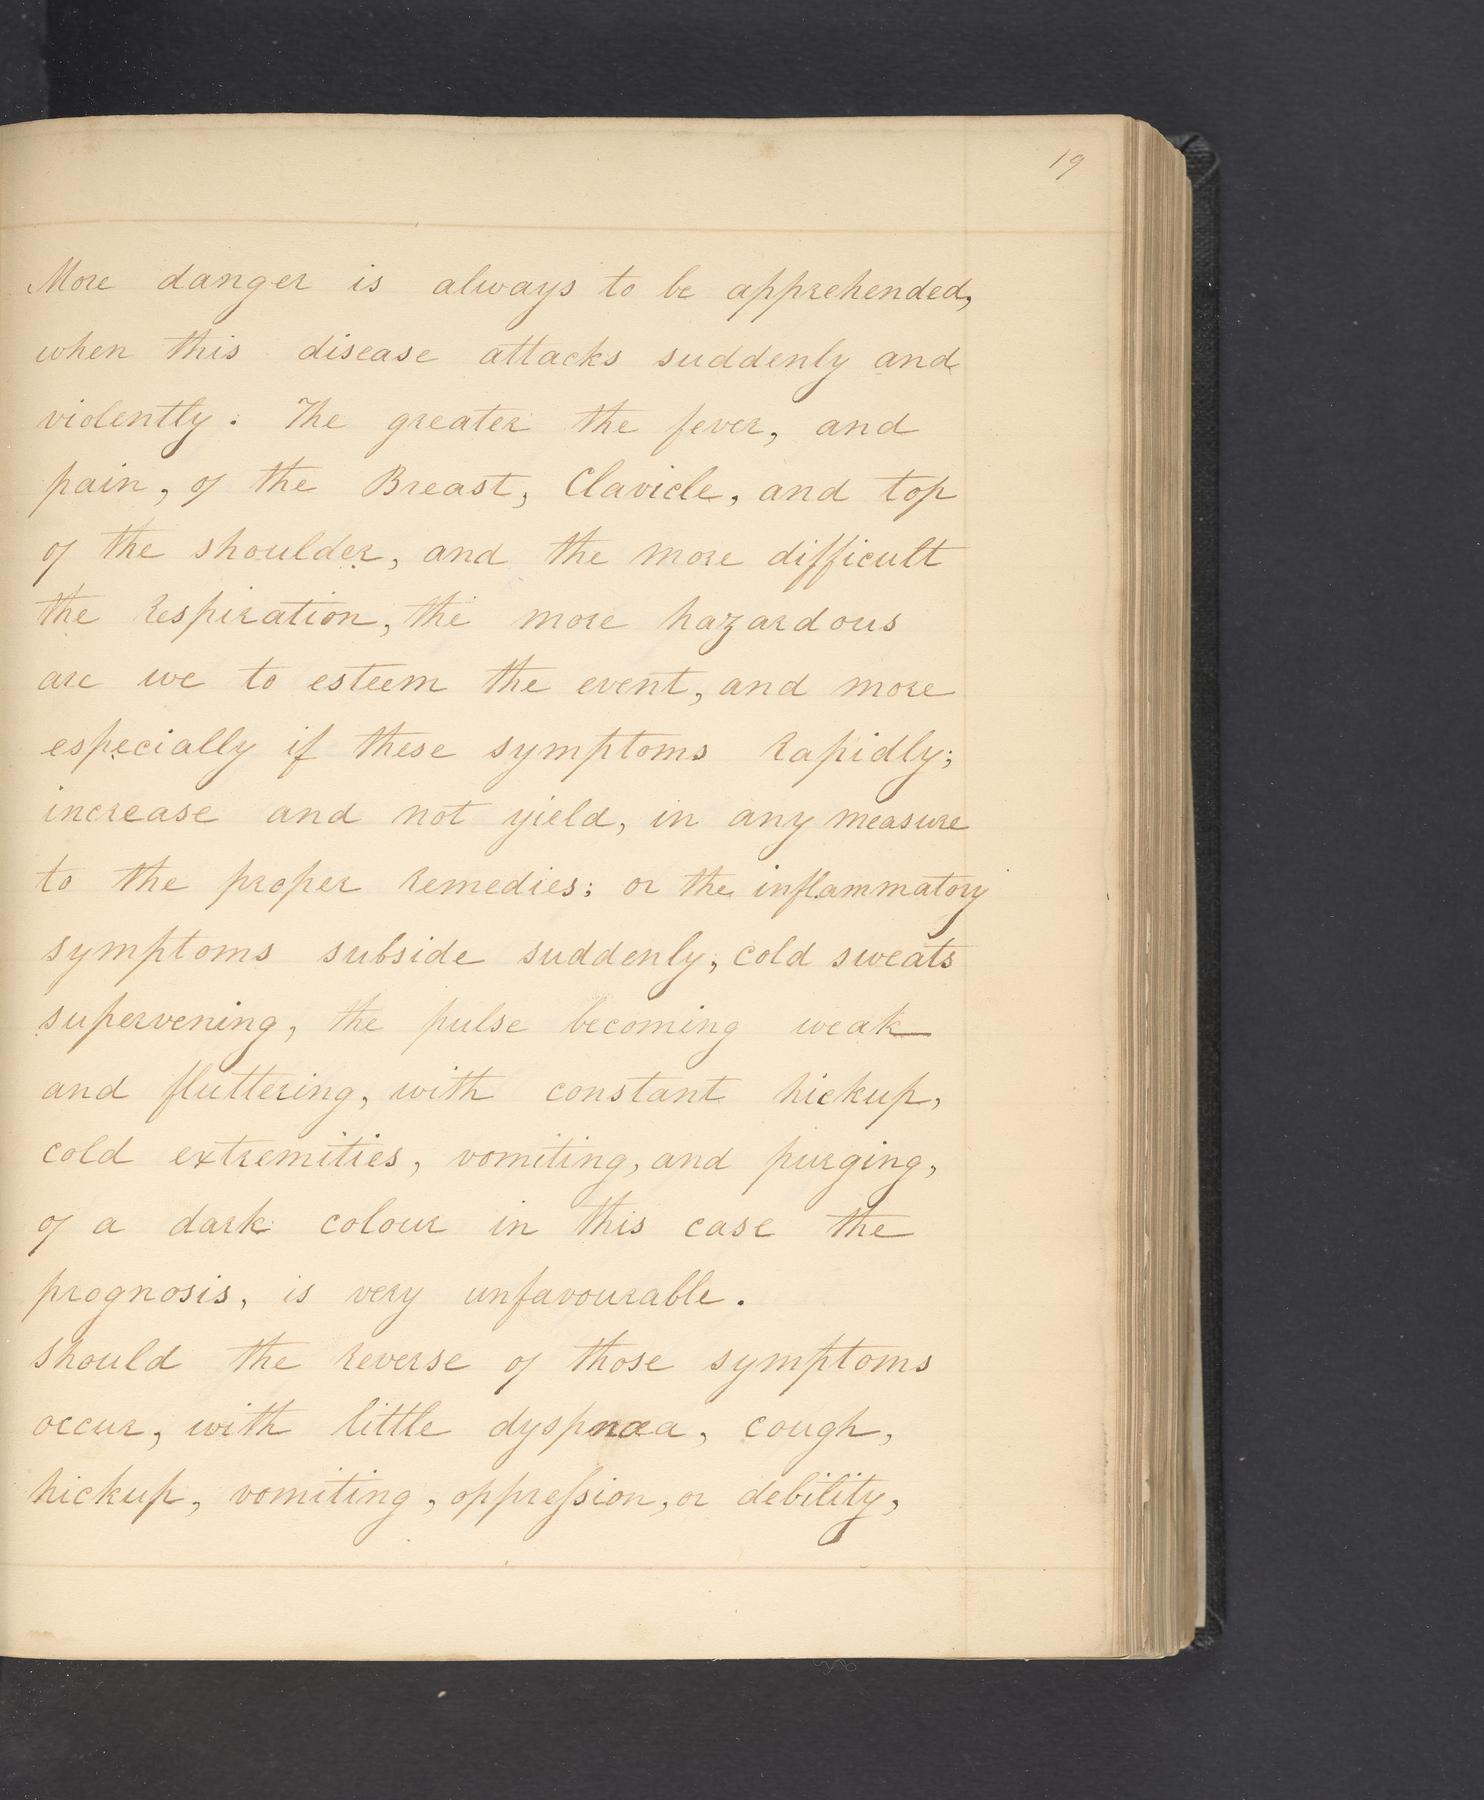 19
More danger is always to be apprehended,
when this disease attacks suddenly and
violently. The greater the fever, and
pain, of the Breast, Clavicle, and top
of the shoulder, and the more difficult
the respiration, the more hazardous
are we to esteem the event, and more
especially if these symptoms rapidly;
increase and not yield, in any measure
to the proper remedies; or the inflammatory
symptoms subside suddenly, cold sweats
supervening, the pulse becoming weak
and fluttering, with constant hickup,
cold extremities, vomiting, and purging,
of a dark colour in this case the
prognosis, is very unfavourable.
should the reverse of those symptoms
occur, with little dyspnœa, cough,
hickup, vomiting, oppreſsion, or debility,